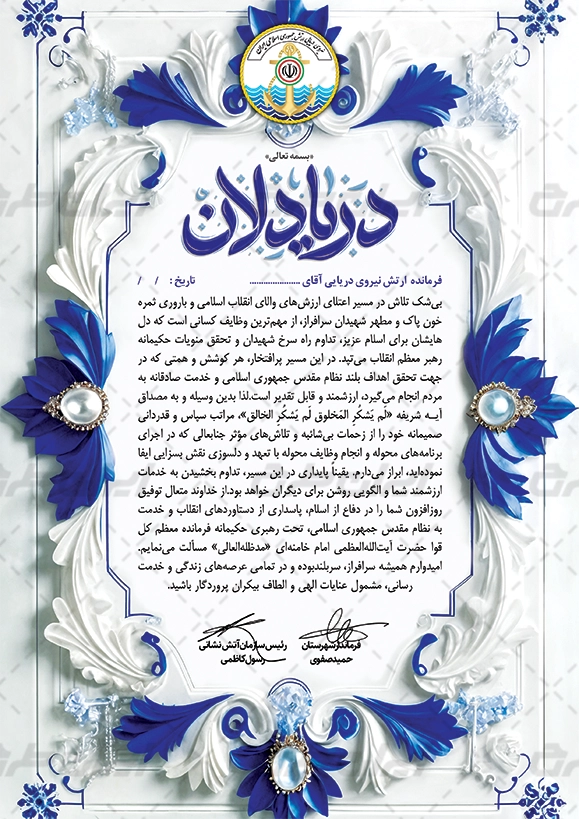 نیروی دریایی ارتش جمهوری اسلامی ایران
«بسمه تعالی»
دریادلان
فرمانده ارتش نیروی دریایی آقای ...................... تاریخ : / /
بی‌شک تلاش در مسیر اعتلای ارزش‌های والای انقلاب اسلامی و باروری ثمره
خون پاک و مطهر شهیدان سرافراز، از مهم‌ترین وظایف کسانی است که دل
هایشان برای اسلام عزیز، تداوم راه سرخ شهیدان و تحقق منویات حکیمانه
رهبر معظم انقلاب می‌تپد. در این مسیر پرافتخار، هر کوشش و همتی که در
جهت تحقق اهداف بلند نظام مقدس جمهوری اسلامی و خدمت صادقانه به
مردم انجام می‌گیرد، ارزشمند و قابل تقدیر است.لذا بدین وسیله و به مصداق
آیــه شریفه «لَم یَشکُرِ المَخلوق لَم یَشکُرِ الخالِق»، مراتب سپاس و قدردانی
صمیمانه خود را از زحمات بی‌شائبه و تلاش‌های مؤثر جنابعالی که در اجرای
برنامه‌های محوله و انجام وظایف محوله با تعهد و دلسوزی نقش بسزایی ایفا
نموده‌اید، ابراز می‌دارم. یقیناً پایداری در این مسیر، تداوم بخشیدن به خدمات
ارزشمند شما و الگویی روشن برای دیگران خواهد بود.از خداوند متعال توفیق
روزافزون شما را در دفاع از اسلام، پاسداری از دستاوردهای انقلاب و خدمت
به نظام مقدس جمهوری اسلامی، تحت رهبری حکیمانه فرمانده معظم کل
قوا حضرت آیت‌الله‌العظمی امام خامنه‌ای «مدظله‌العالی» مسألت می‌نمایم.
امیدوارم همیشه سرافراز، سربلندبوده و در تمامی عرصه‌های زندگی و خدمت
رسانی، مشمول عنایات الهی و الطاف بیکران پروردگار باشید.
فرماندار شهرستان رئیس سازمان آتش نشانی
حمید صفوی رسول کاظمی